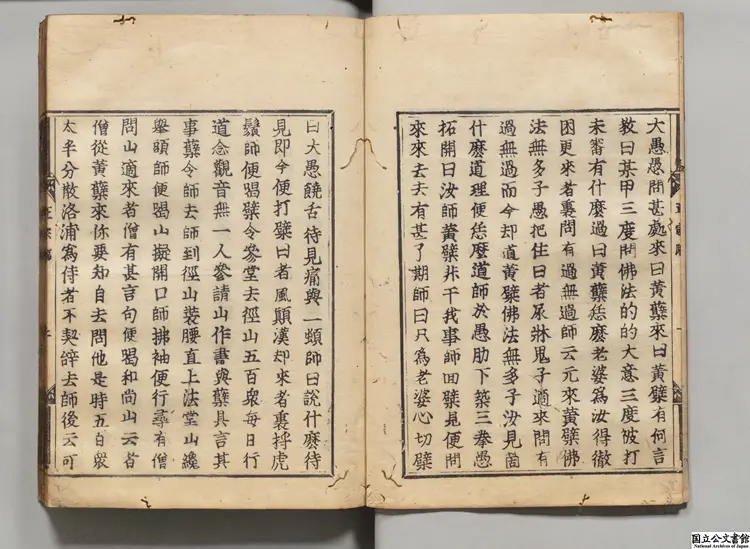 大愚愚問甚處來曰黃蘗來曰黃蘗有何言
教曰某甲三度問佛法的的大意三度被打
未審有什麽過曰黃蘗恁麽老婆爲汝得徹
困更來者裏問有過無過師云元來黃蘗佛
法無多子愚把住曰者尿牀鬼子適來問有
過無過而今却道黃蘗佛法無多子汝見箇
什麽道理便恁麽道師於愚肋下築三拳愚
拓開曰汝師黃蘗非干我事師回蘗見便問
來來去去有甚了期師曰只爲老婆心切蘗
曰大愚饒舌待見痛與一頓師曰說什麽待
見即今便打蘗曰者風顚漢却來者裏捋虎
鬚師便喝蘗令參堂去徑山五百衆每日行
道念觀音無一人參請山作書與蘗具言其
事蘗令師去師到徑山裝腰直上法堂山纔
舉頭師便喝山擬開口師拂袖便行尋有僧
問山適來者僧有甚言句便喝和尚山云者
僧從黃蘗來你要知自去問他是時五百衆
太半分散洛浦爲侍者不契辭去師後云可
国立公文書館
National Archives of Japan